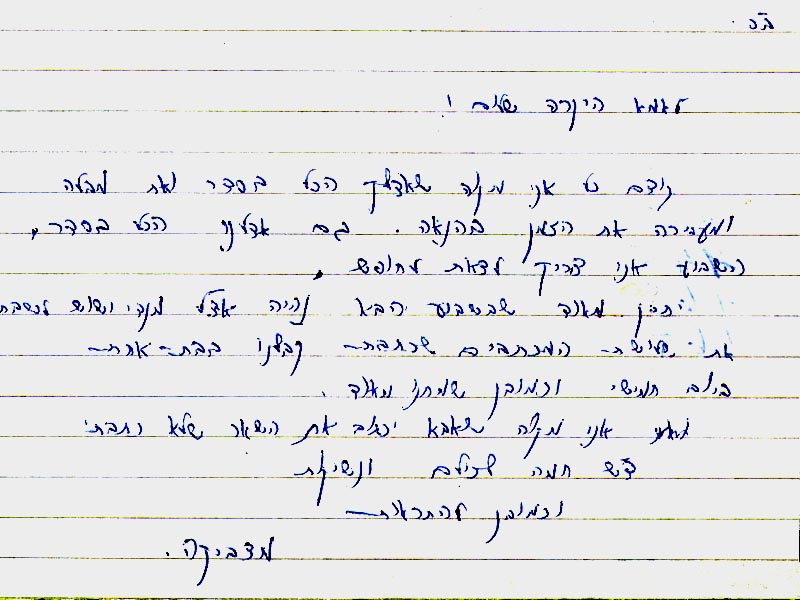 ב"ה
לאמא היקרה שלום !
קודם כל אני מקוה שאצלך הכל בסדר ואת מבלה
ומעבירה את הזמן בהנאה. גם אצלנו הכל בסדר,
השבוע אני צריך לצאת לחופש.
יתכן מאוד שבשבוע הבא נהיה אצל מנדי ושוש לשבת
את שלושת המכתבים שכתבת קבלנו בבת-אחת
ביום חמישי וכמובן שמחנו מאוד.
אני מקוה שאבא יכתוב את השאר שלא כתבתי
ד"ש חמה לכולם ונשיקות
וכמובן להתראות
מצביקה.